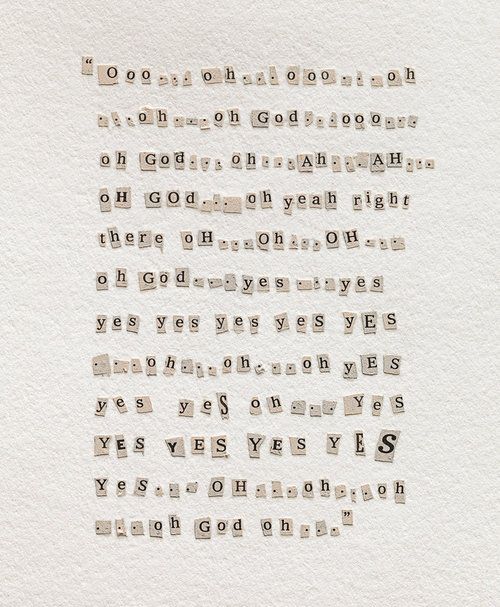 “Ooo.... oh....ooo....oh
....oh....oh God...ooo....
oh God....oh....Ah....AH....
oH GOd.... oh yeah right
there oH....Oh....OH....
oh God....yes....yes
yes yes yes yeS yES
....oh....oh....oh yES
yes yeS oh.... YeS
YES YES YES YES
YeS.... OH....oh....oh
....oh God oh....”